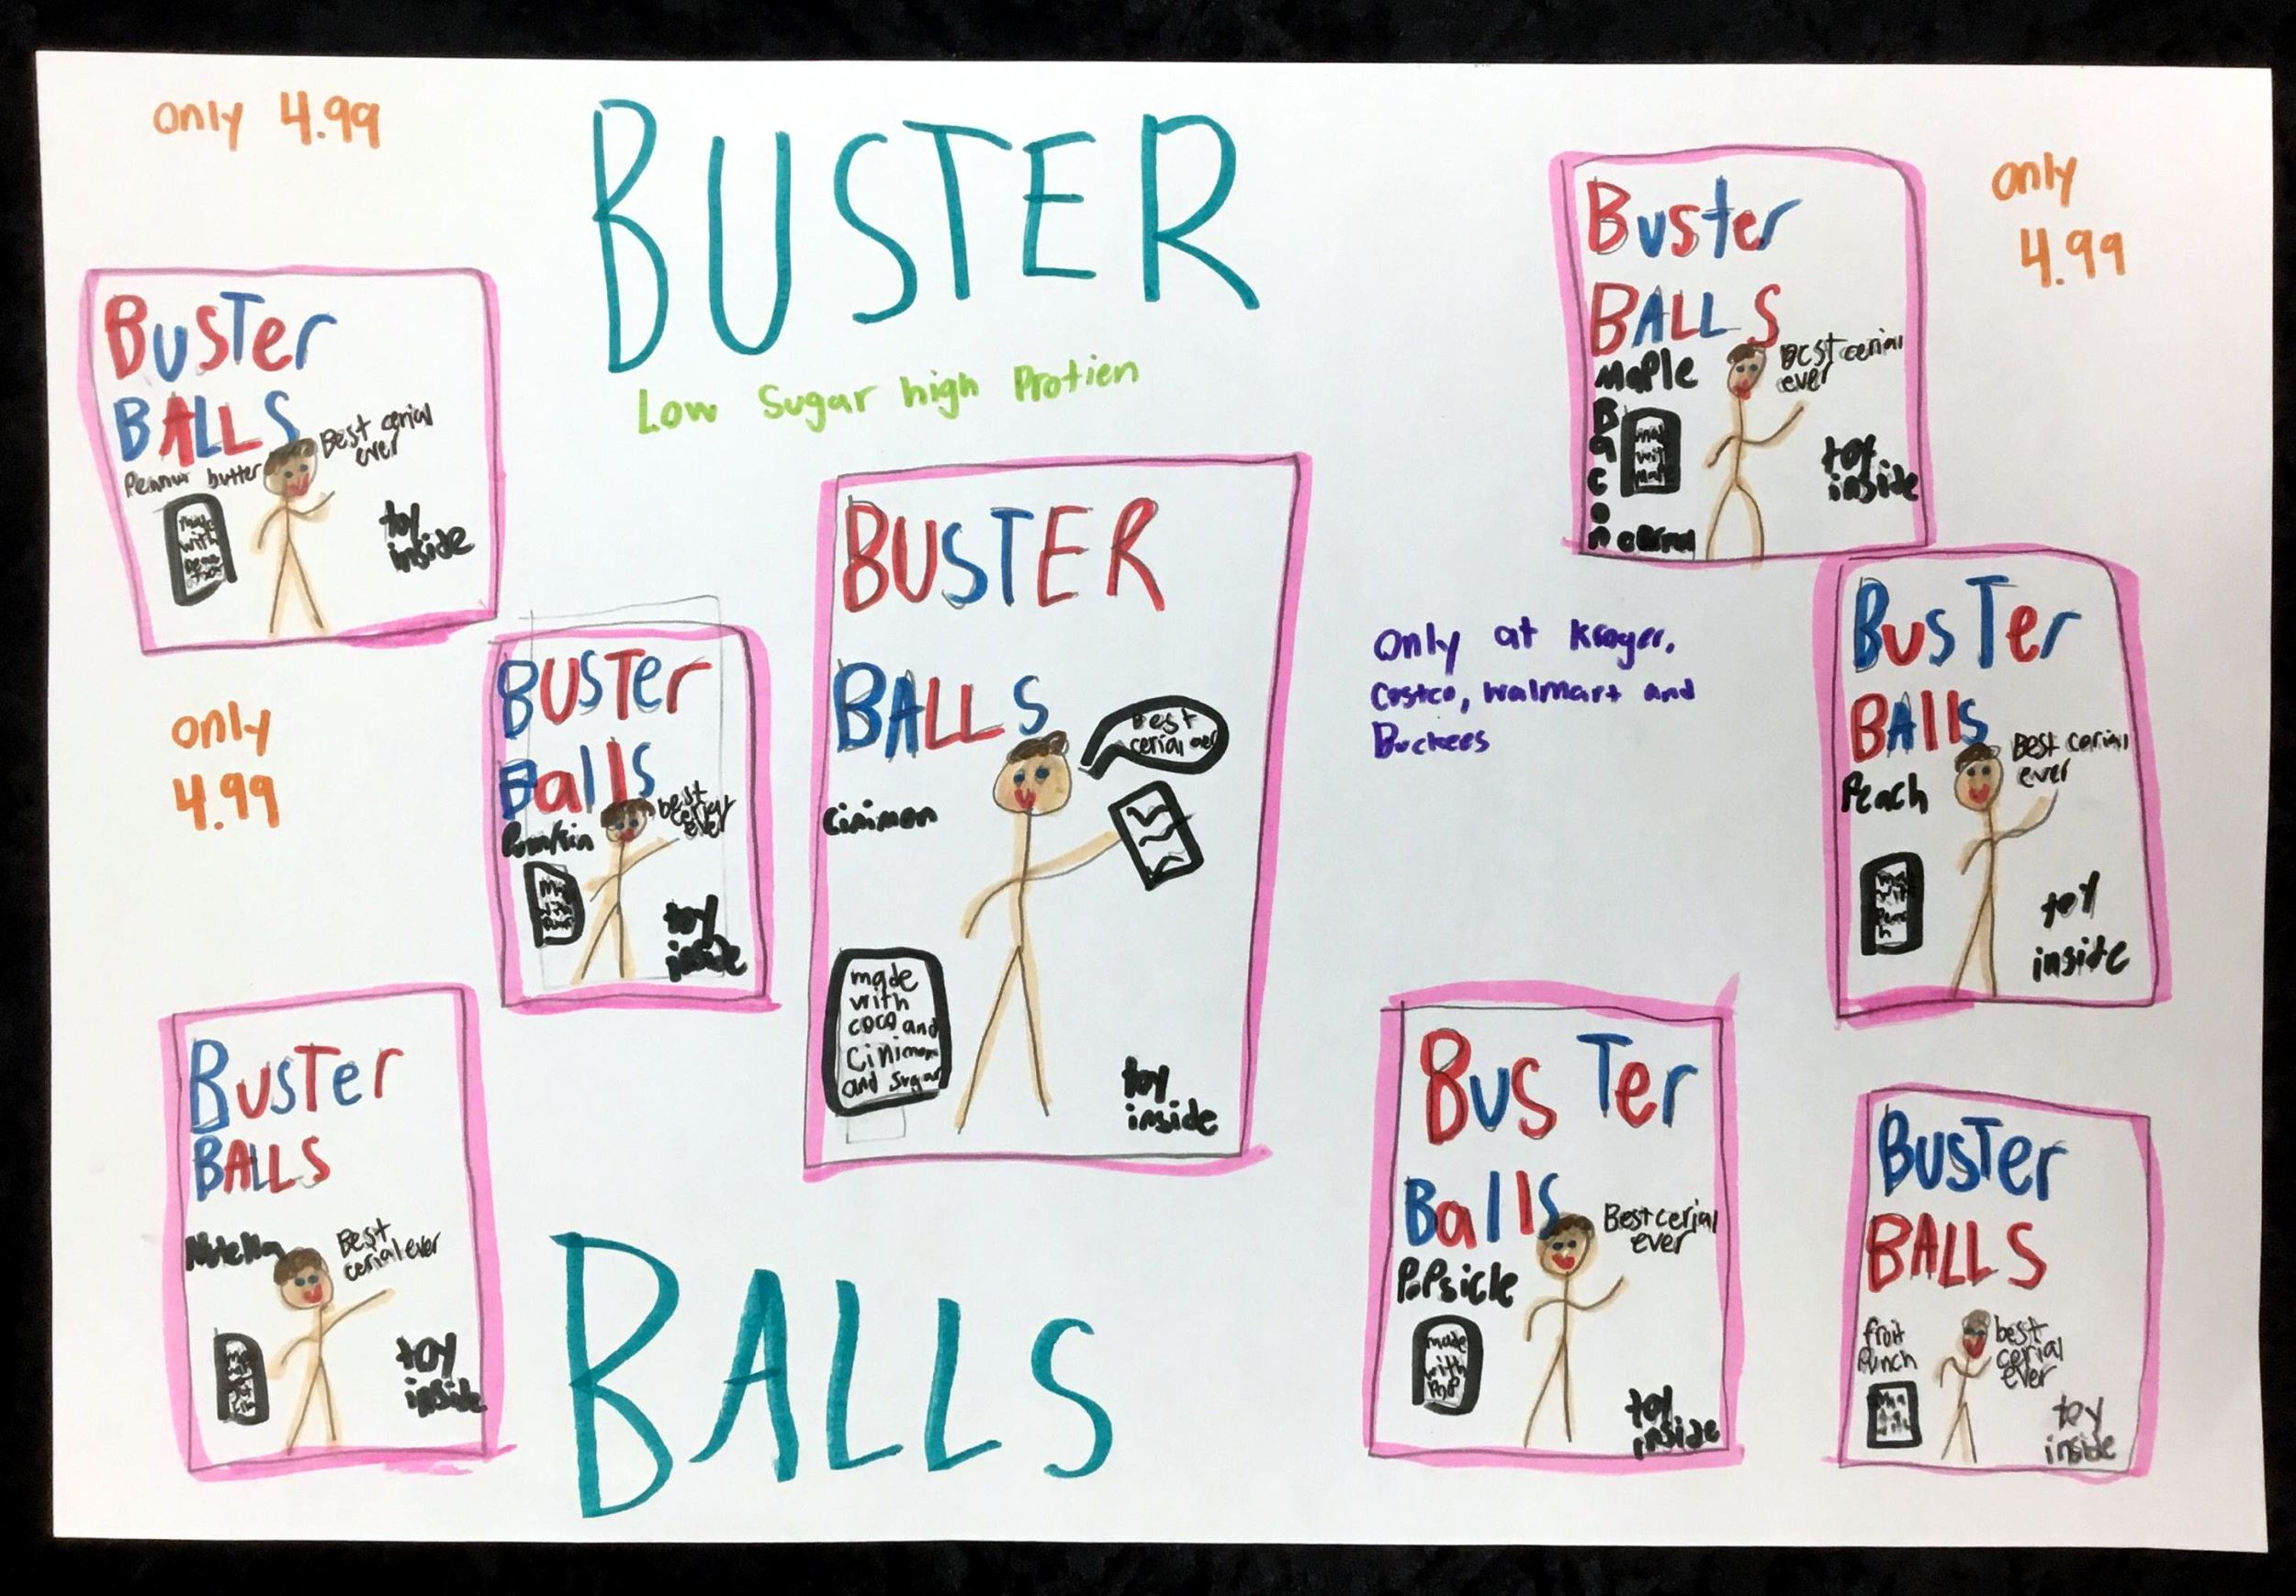 only 4.99
BUSTER
Low Sugar high Protien
only
4.99
Buster
BALLS
Peanut butter
Best cerial
ever
made
with
toy
inside
only
4.99
BUSTer
Balls
Pumkin
best
cerial
ever
with
toy
inside
BUSTER
BALLS
Best
cerial
Cinimon
made
with
coco and
Cinimon
and sugar
toy
inside
Buster
BALLS
Maple
Bacon
Best cerial
ever
toy
inside
Only at Kroger,
Costco, Walmart and
Buckees
BusTer
BAlls
Peach
Best cerial
ever
toy
inside
BusTer
BALLS
Nutella
Best
cerial ever
toy
inside
BALLS
BusTer
Balls
Popsicle
Best cerial
ever
made
with
PoP
toy
inside
BUSTer
BALLS
fruit
Punch
best
cerial
ever
toy
inside